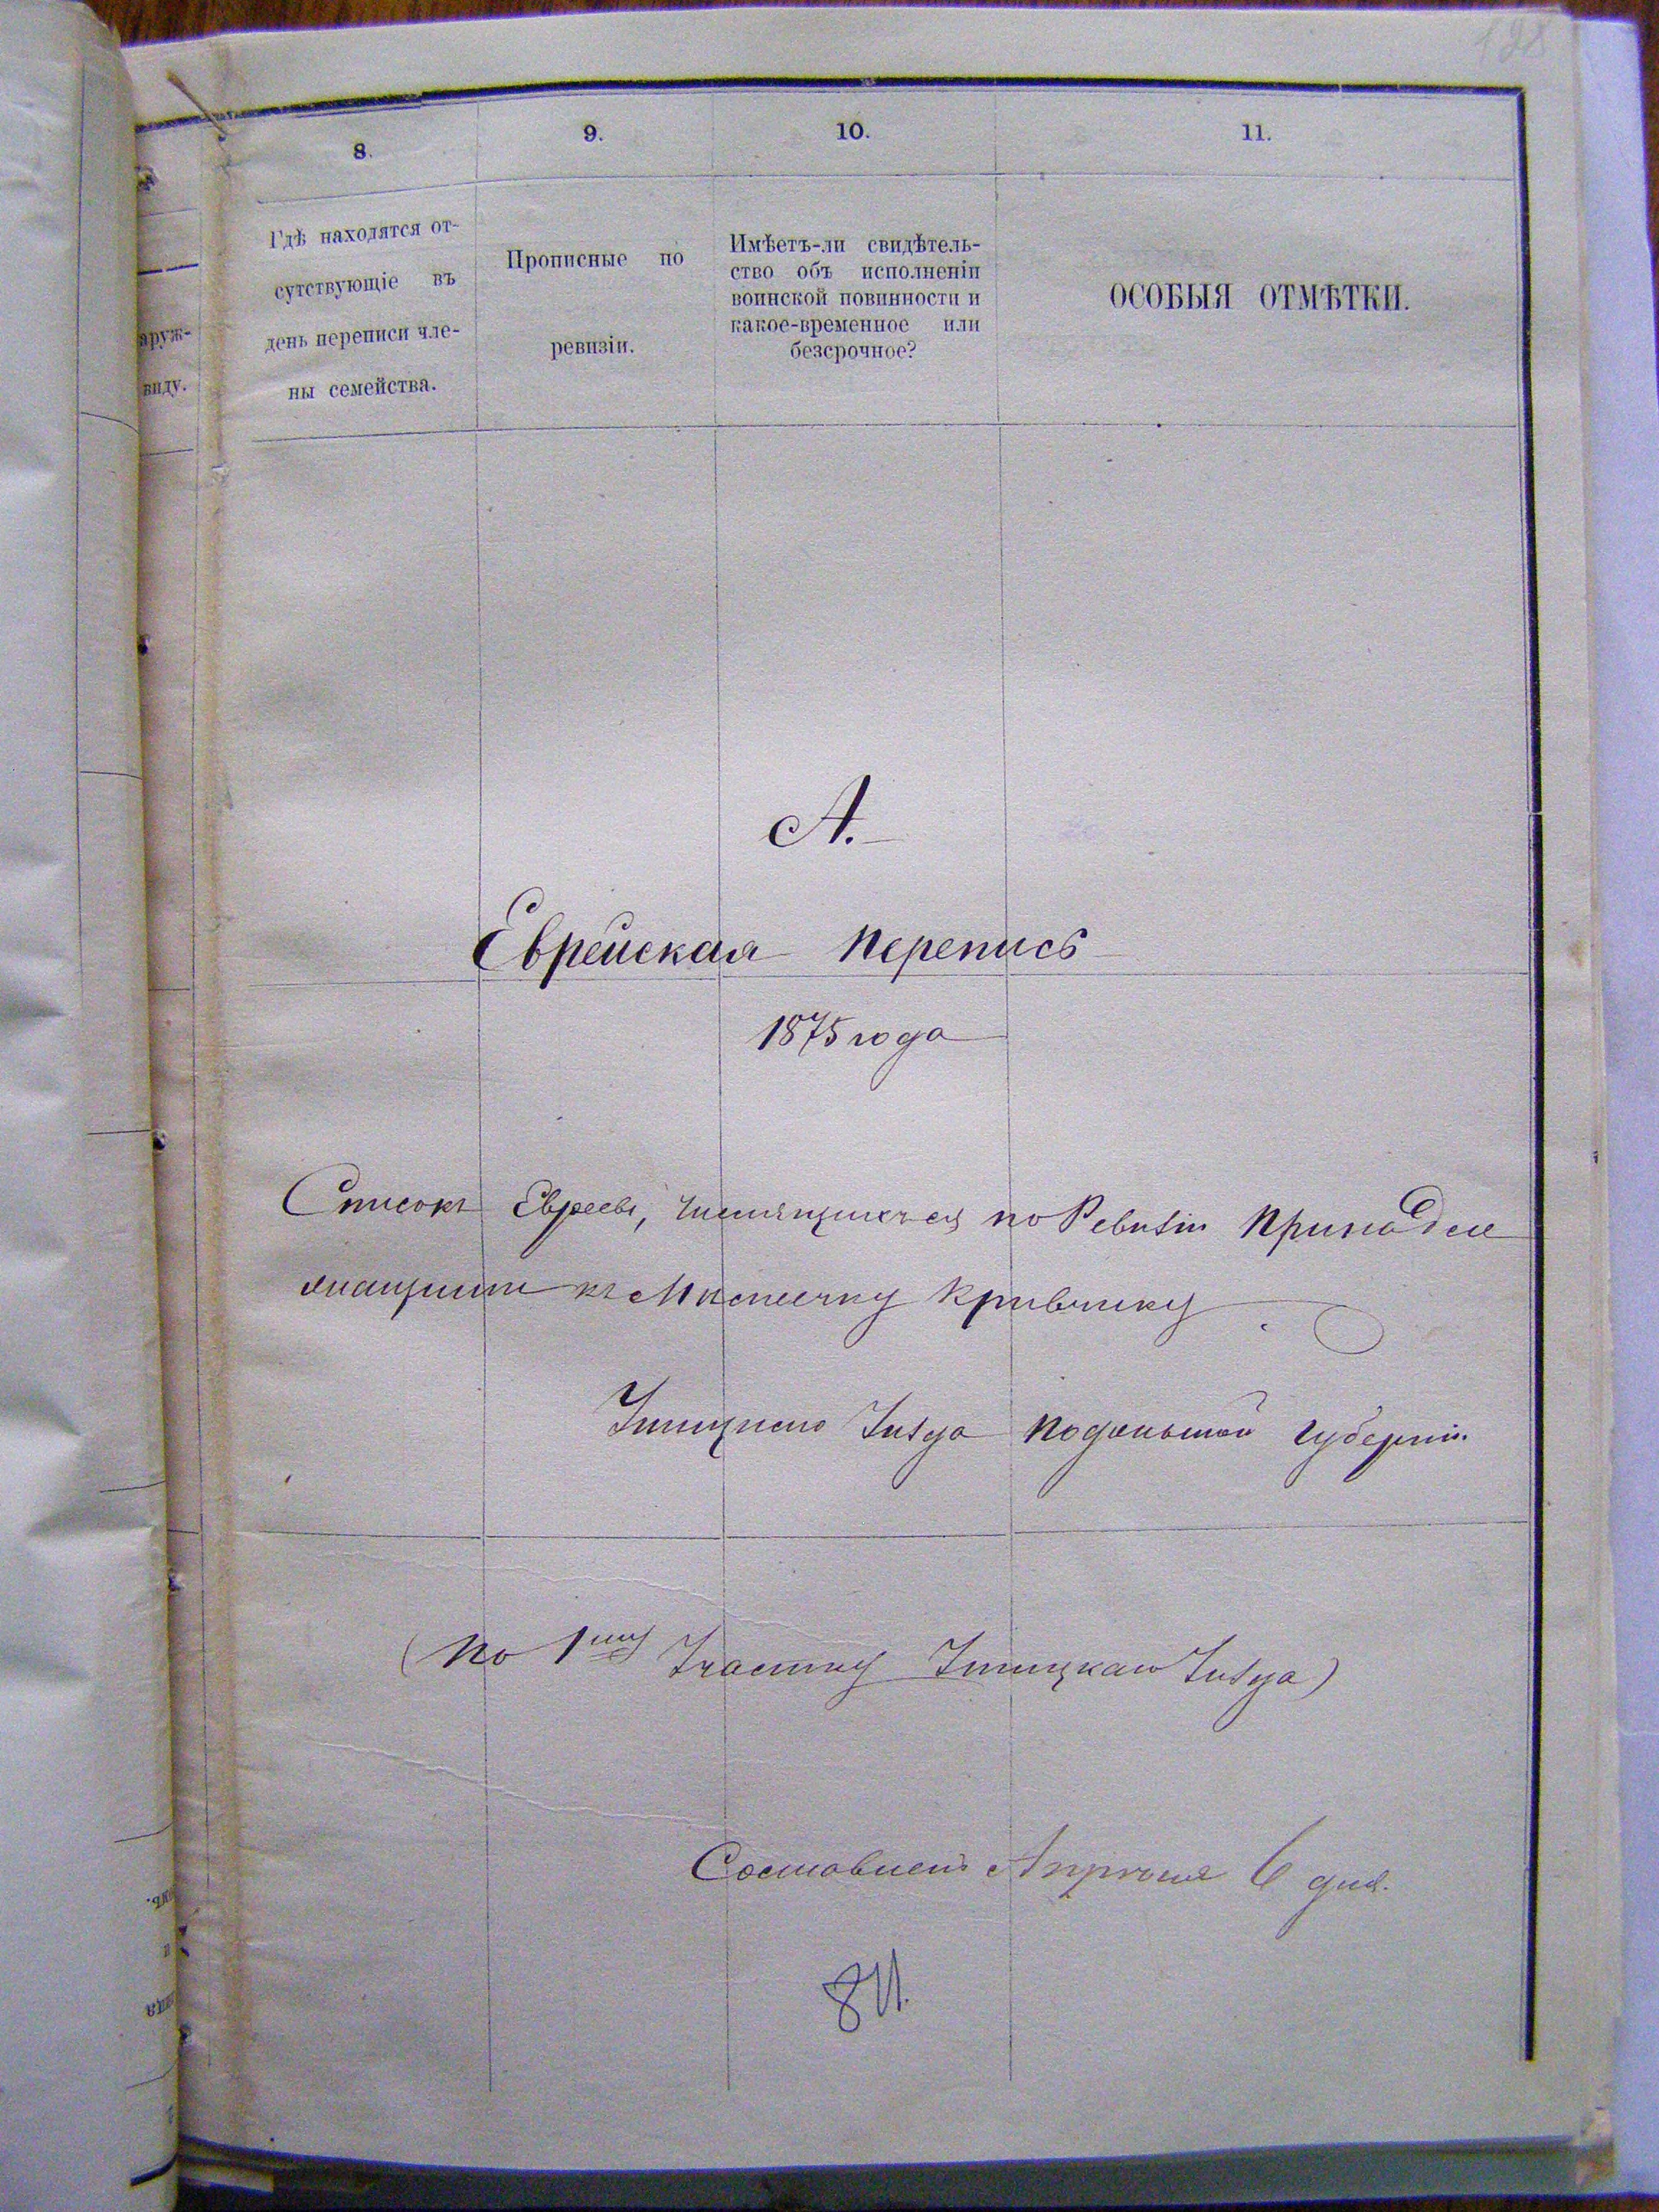 128
8.
9.
10.
11.
Гдѣ находятся от-
сутствующіе въ
день переписи чле-
ны семейства.
Прописные по
ревизіи.
Имѣетъ-ли свидѣтель-
ство объ исполненіи
воинской повинности и
какое-временное или
безсрочное?
ОСОБЫЯ ОТМѢТКИ.
аруж-
виду.
А.
Еврейская перепись
1875 года
Списокъ Евреевъ, числящихся по Ревизіи Принадле
жащимъ къ Мѣстечку Кривчику
Ушицкаго Уѣзда Подольской губерніи
(По 1му Участку Ушицкаго Уѣзда)
Составленъ Апрѣля 6 дня.